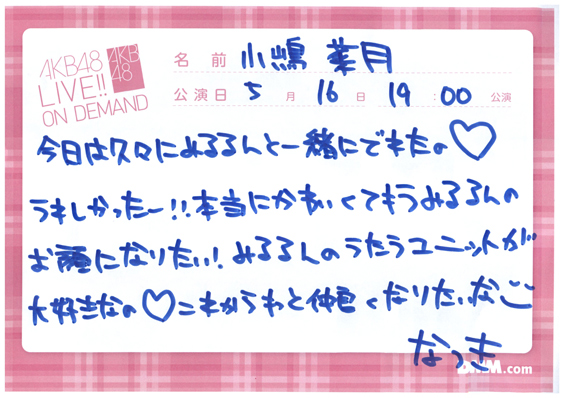 AKB48
LIVE!!
ON DEMAND
AKB
48
名 前 小嶋 菜月
公演日 5 月 16 日 19:00 公演
今日は久々にみるるんと一緒にできたの♡
うれしかったー!!本当にかわいくてもうみるるんの
お
になりたい!みるるんのうたうユニットが
大好きなの♡これからもっと仲良くなりたいなここ
なっき
DMM.com